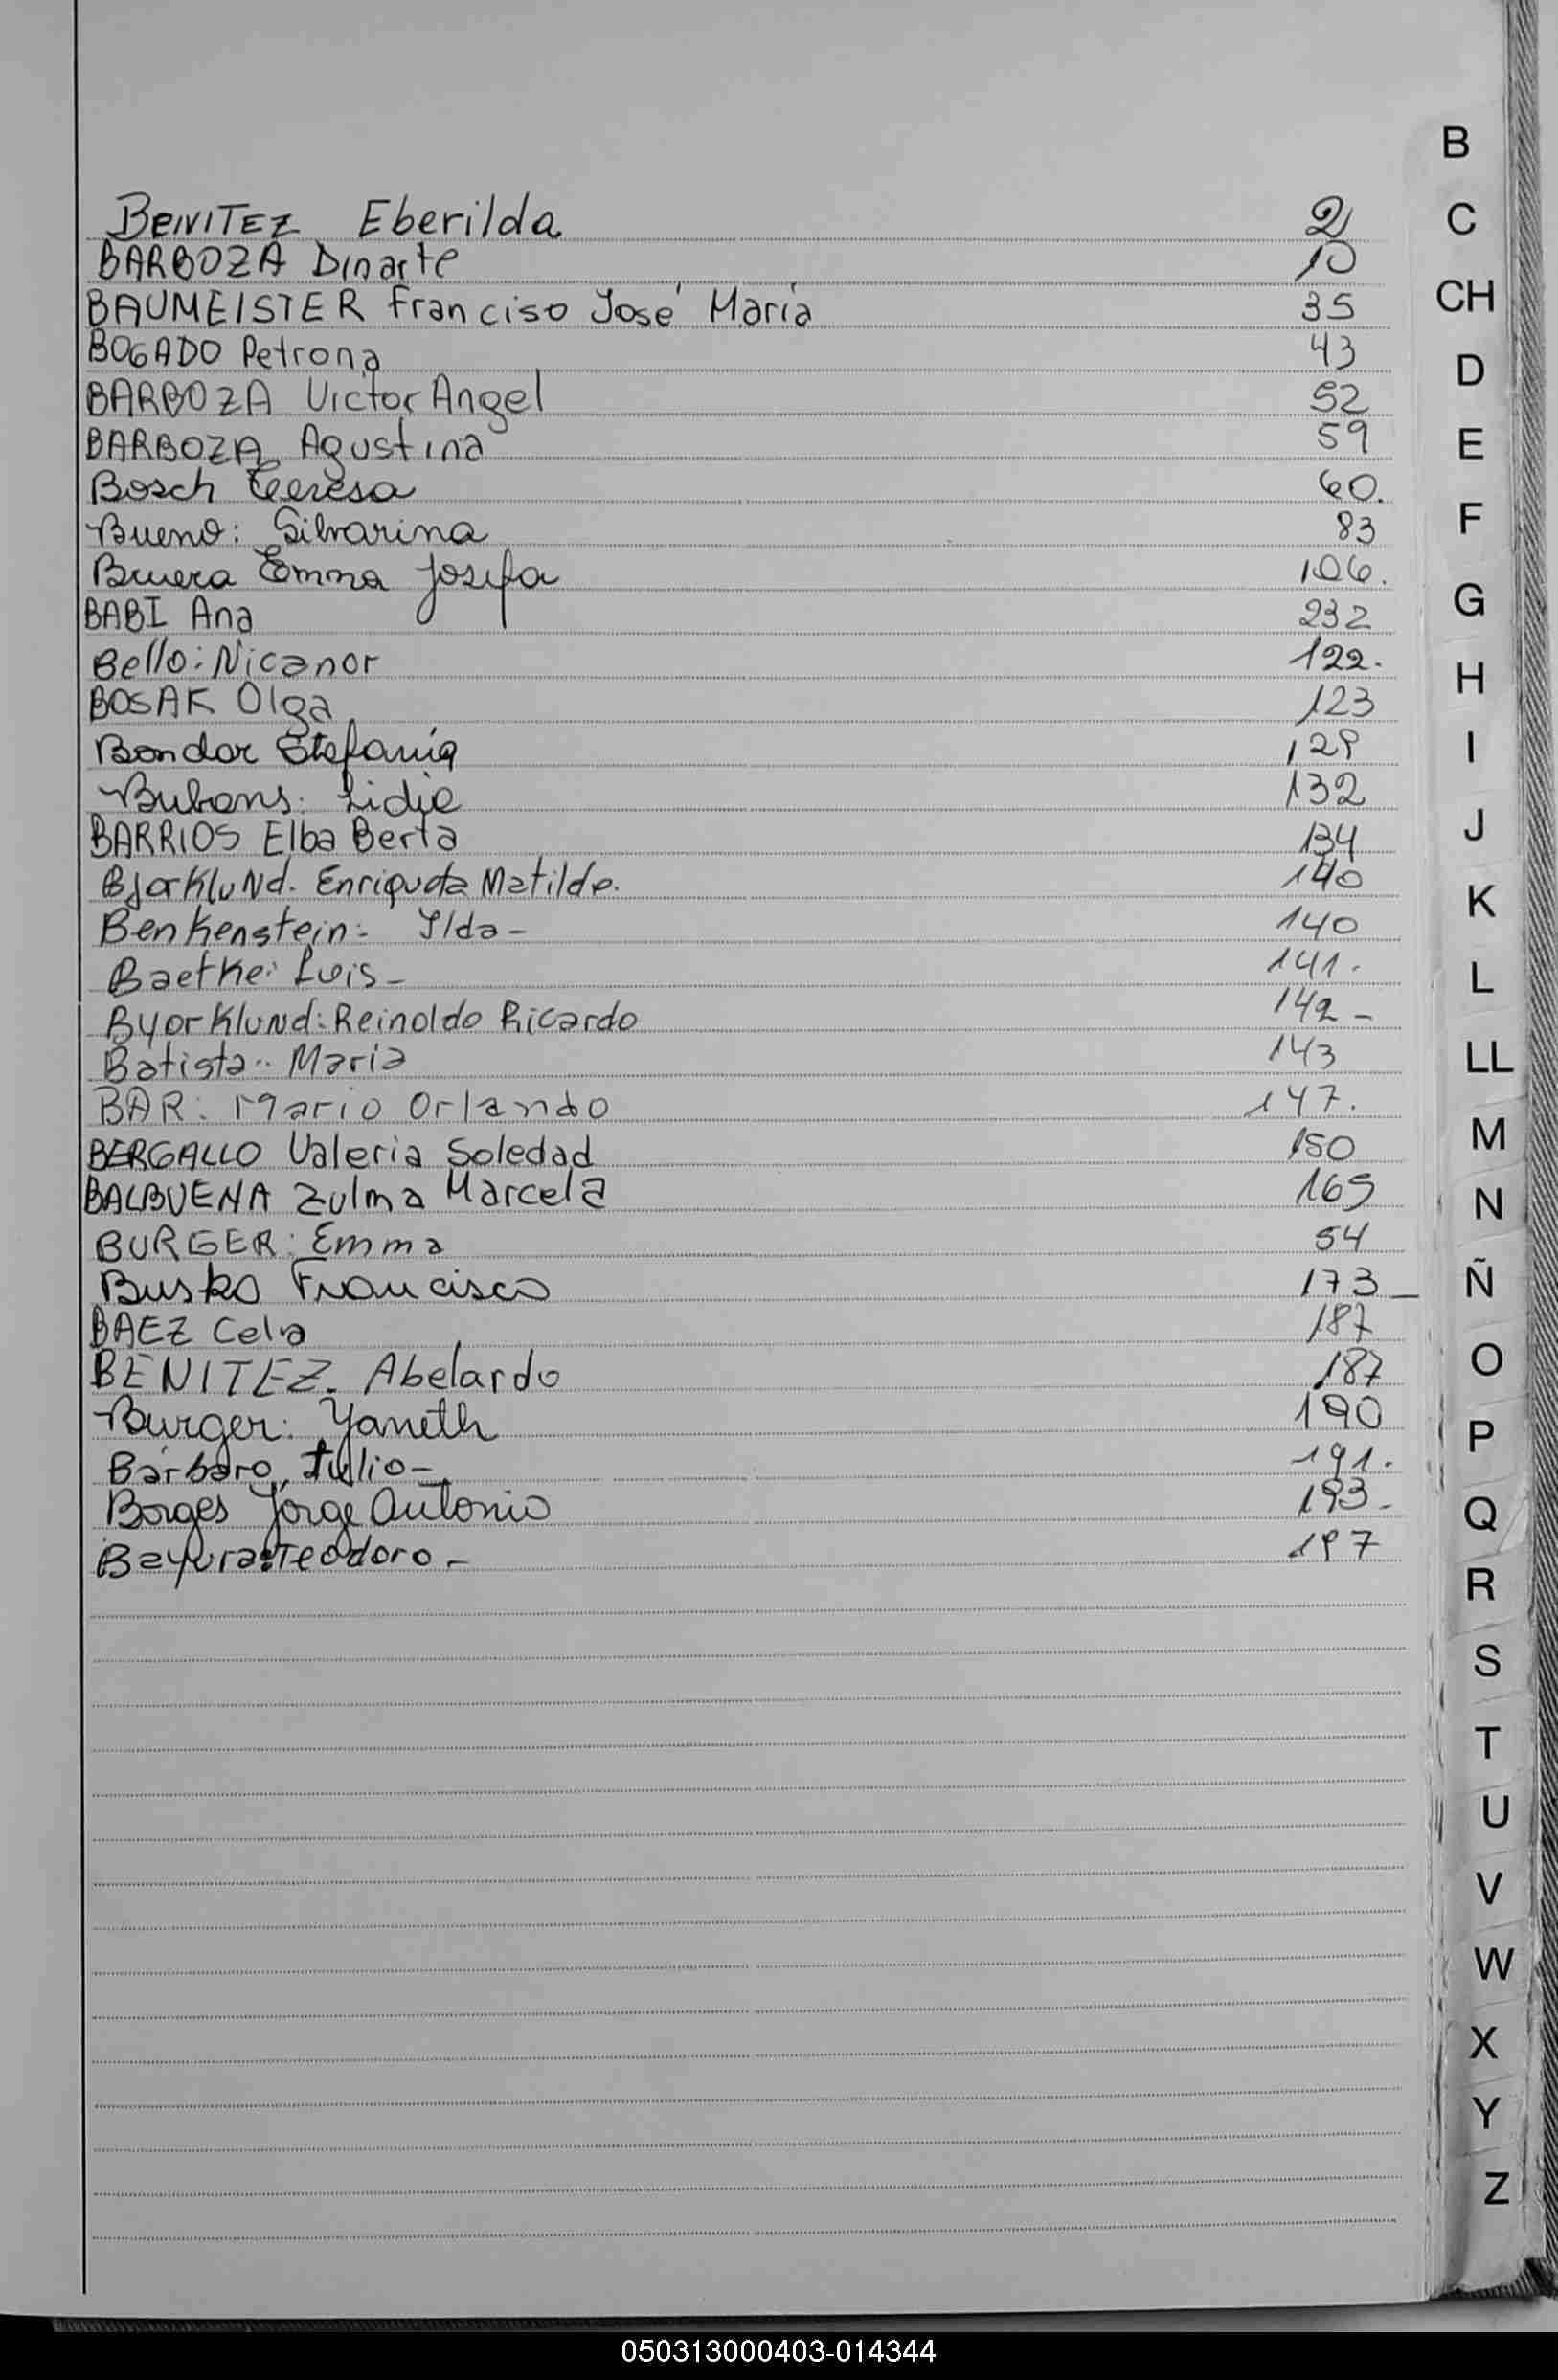 B
BENITEZ Eberilda 2
C
BARBOZA Dinarte 10
BAUMEISTER Franciso José María 35
CH
BOGADO Petrona 43
D
BARBOZA Victor Angel 52
BARBOZA Agustina 59
E
Bosch Teresa 60.
Bueno: Silvarina 83
F
Bruera Emma Josefa 106.
BABI Ana 232
G
Bello: Nicanor 122.
H
BOSAK Olga 123
Bondar Estefania 129
I
Bubans: Lidia 132
BARRIOS Elba Berta 134
J
BjorKluNd. Enriqueta Matilde. 140
K
Benkenstein: Ilda - 140
Baetke: Luis - 141.
L
ByorKluNd: Reinoldo Ricardo 142 -
Batista.. Maria 143
LL
BAR: Mario Orlando 147.
M
BERGALLO Valeria Soledad 150
BALBUENA Zulma Marcela 165
N
BURGER: Emma 54
Busko Francisco 173 _
Ñ
BAEZ Celia 187
BENITEZ. Abelardo 187
O
Burger: Yaneth 190
P
Bárbaro, Julio - 191.
Borges Jorge Antonio 193 -
Q
Bayura: Teodoro - 197
R
S
T
U
V
W
X
Y
Z
050313000403-014344